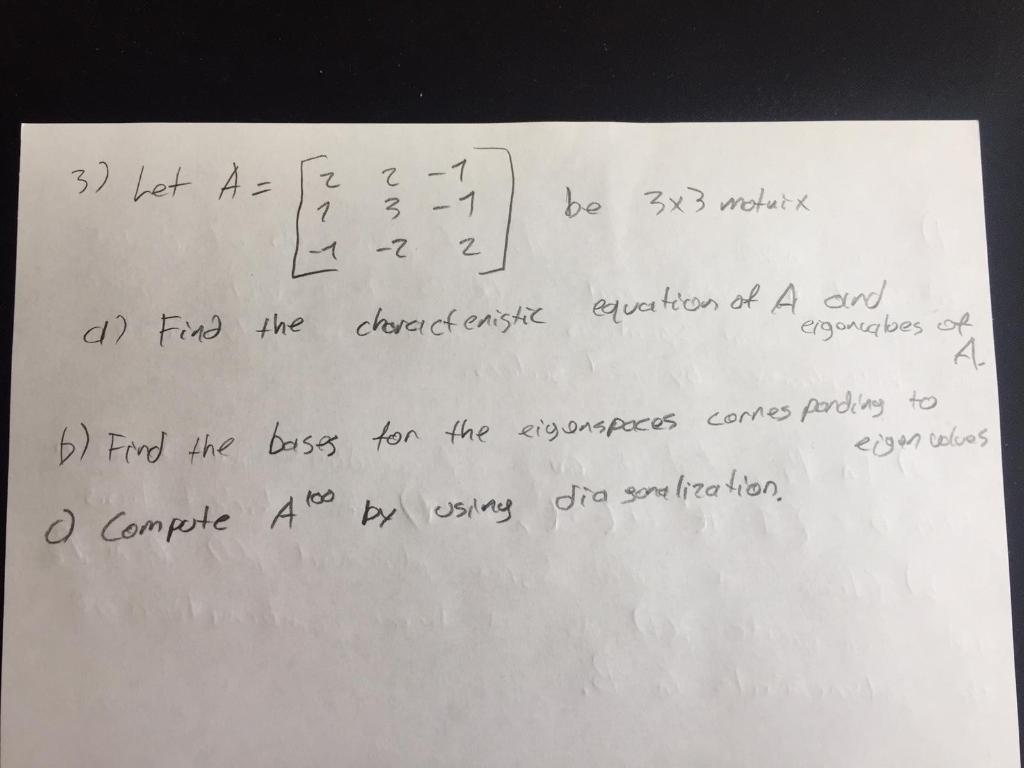 3) Let A = [ 2 2 -1
1 3 -1
-1 -2 2 ] be 3x3 matrix
a) Find the characteristic equation of A and
eigenvalues of
A.
b) Find the bases for the eigenspaces corresponding to
eigen values
c) Compute A^100 by using diagonalization.